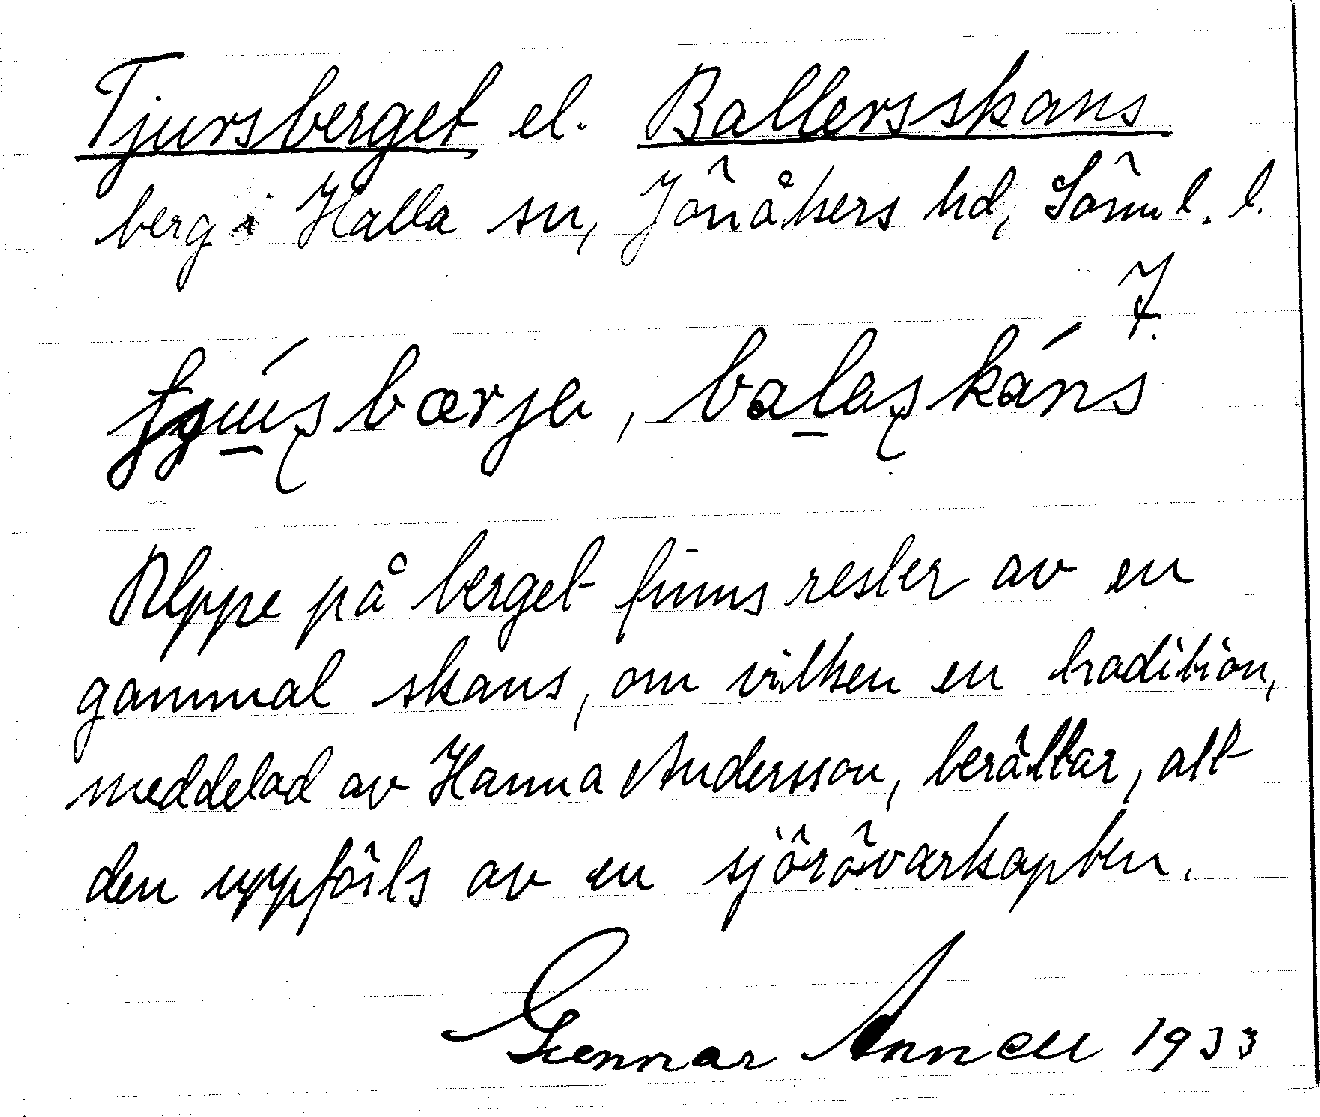 Tjursberget el. Ballersskans
berg i Halla sn, Jönåkers hd, Söml. l.
7.
bærje, balaskáns
Uppe på berget finns rester av en
gammal skans, om vilken en tradition,
meddelad av Hanna Andersson, berättar, att
den uppförts av en sjörövarkapten.
Gunnar Annell 1933